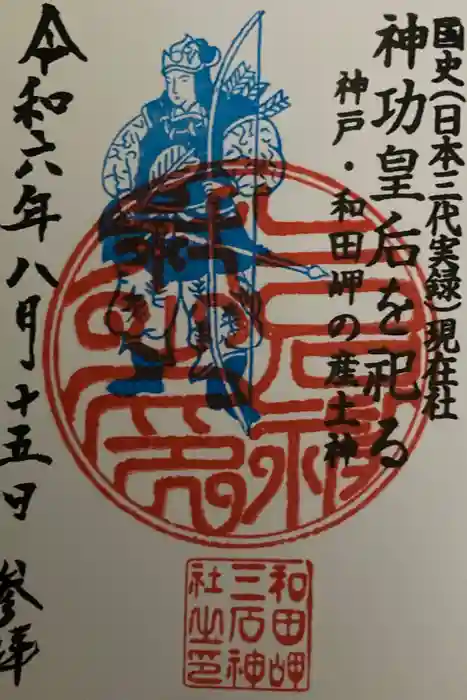 国史(日本三代実録)現在社
神功皇后を祀る
神戸・和田岬の産土神
令和六年八月十五日 参拝
和田岬
三石神
社之印